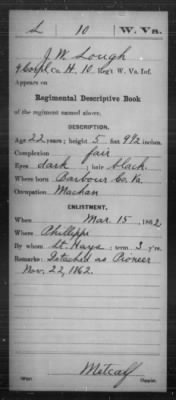 L | 10 | W. Va.
J. W. Lough
4 Corpl, Co. H, 10 Reg't W. Va. Inf.
Appears on
Regimental Descriptive Book
of the regiment named above.
DESCRIPTION.
Age 22 years; height 5 feet 9 1/2 inches.
Complexion fair
Eyes dark; hair black.
Where born Barbour Co. Va.
Occupation Machan
ENLISTMENT.
When Mar. 15, 1862.
Where Phillippi
By whom Lt. Hays; term 3 y'rs.
Remarks: Detached as Pioneer
Nov. 22, 1862.
Metcalf
Copyist.